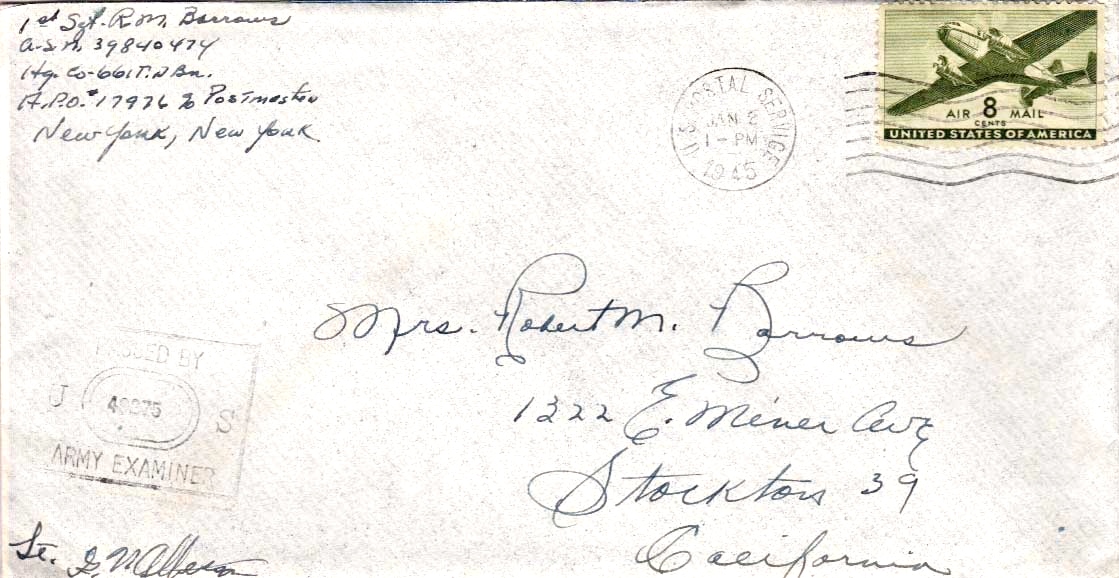 1st Sgt. R.M. Barrows
A.S.N. 39840474
Hq. Co-661 T.D Bn.
A.P.O.# 17976 % Postmaster
New York, New York
U.S. POSTAL SERVICE
JAN 2
1-PM
1945
AIR 8 MAIL
CENTS
UNITED STATES OF AMERICA
Mrs. Robert M. Barrows
1322 E. Miner Ave
Stockton 39
California
PASSED BY
U S
ARMY EXAMINER
Lt.